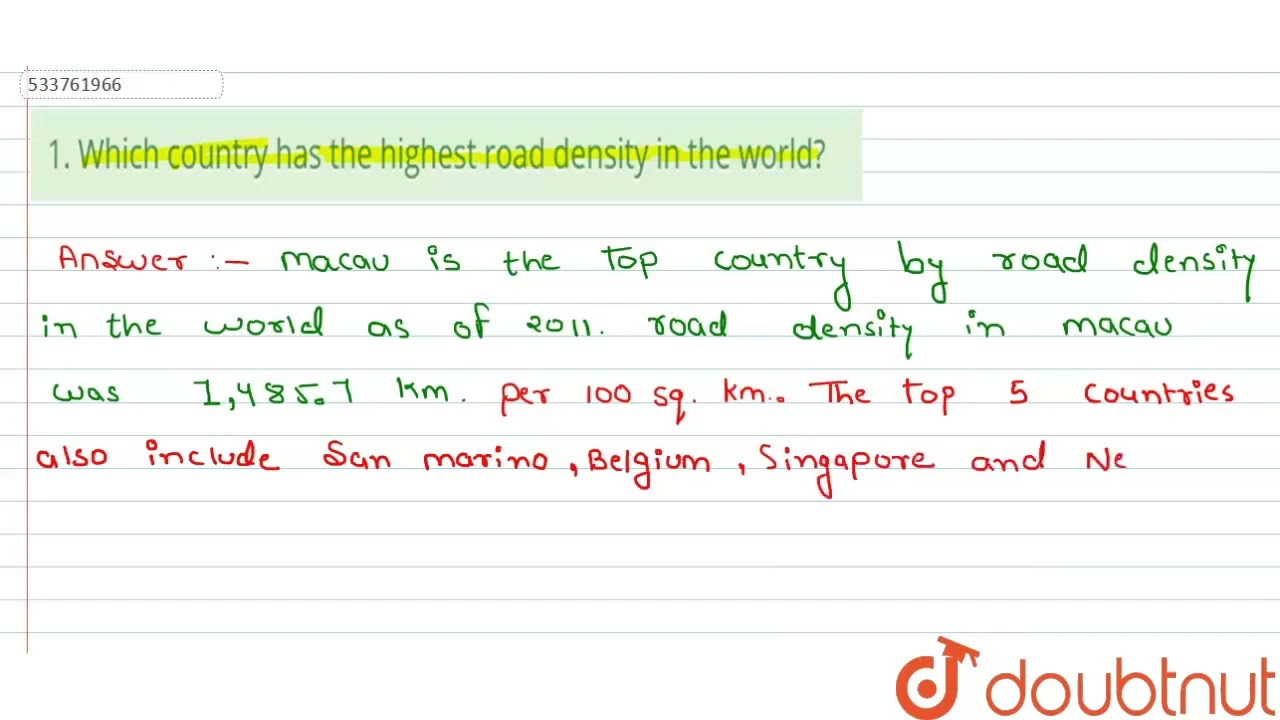 533761966
1. Which country has the highest road density in the world?
Answer :- macau is the top country by road density
in the world as of 2011. road density in macau
was 1,485.7 km. per 100 sq. km.. The top 5 countries
also include San marino, Belgium, Singapore and Ne
doubtnut